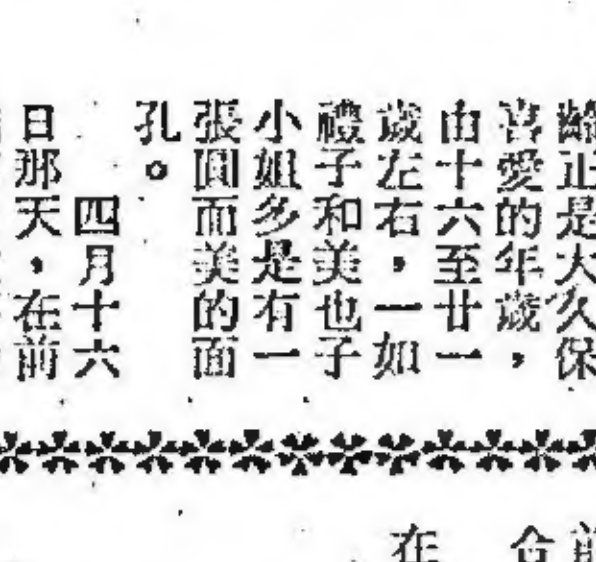 齡正是大久保
喜愛的年歲，
由十六至廿一
歲左右，一如
禮子和美也子
小姐多是有一
張圓而美的面
孔。
四月十六
日那天，在前
前
合
在